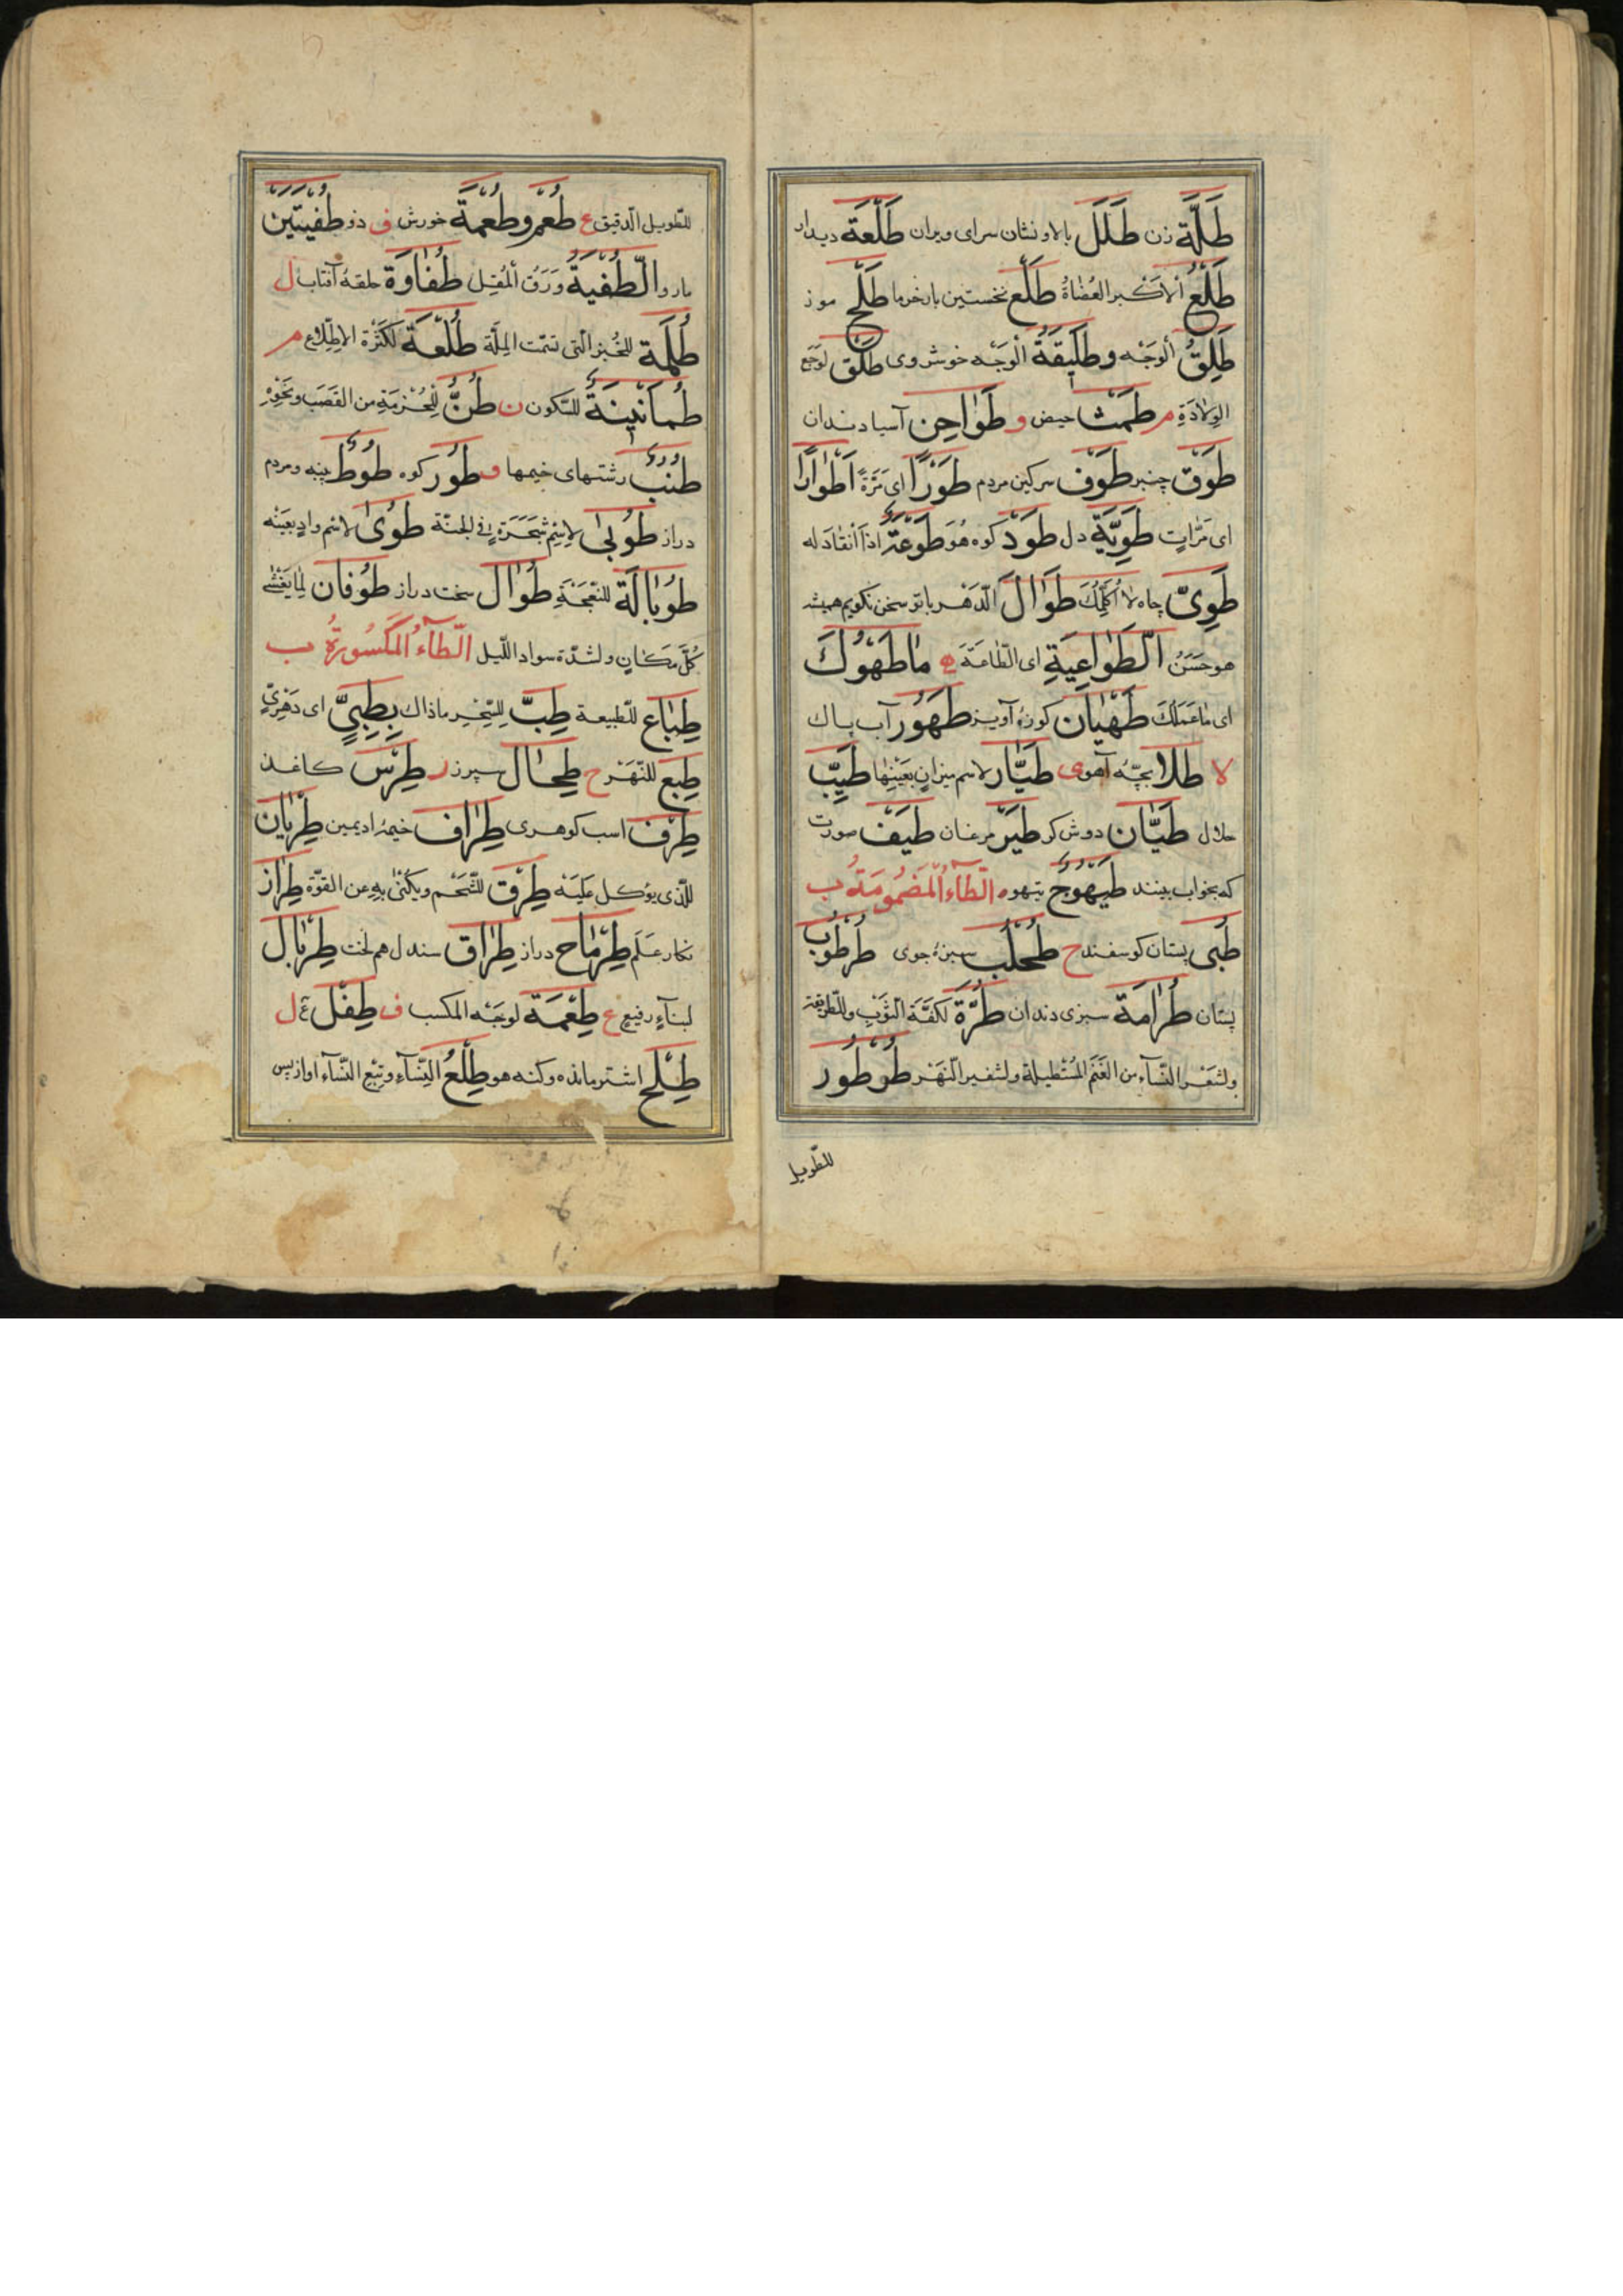 طَلَّة زن طَلَل بالا و نشان سرای ویران طَلْعَة دیدار
طَلْع الأكبر العُضَاهُ طَلْع نخستین بار خرما طَلْح موز
طَلِقُ الوَجْه وطَلِيقَةُ الْوَجْه خوش روی طَلْق لوَجَع
الوِلَادَةِ م طَمْث حیض و طَوَاحِن آسیا دندان
طَوْق چنبر طَوْف سرکین مردم طَوْرًا ای مَرَّةً اَطْوَارًا
ای مَرَّاتٍ طَوِيَّة دل طَوْد کوه هُوَ طَوْعَتُهُ اذَا انْقَادَ له
طَوِیّ چاه لا اُكَلِّمُكَ طَوَالَ الدَّهْر با تو سخن نکویم همیشه
هو حَسَنُ الطَّوَاعِيَةِ ای الطَّاعَةَ ه مَا طَهْوُكَ
ای مَا عَمَلُكَ طَهْيَان کوزهٔ آویز طَهُور آب پاک
لا طَلَا بچّهٔ آهو ی طَيَّار لاسم میزانٍ بعَيْنِهَا طَيِّب
حلال طَيَّان دوش کر طَيْر مرغان طَيْف صورت
که بخواب بینند طَيْهُوج تیهو ه الطَّاءُ الْمَضْمُومَةُ ب
طُبْی پستان کوسفند ح طُحْلُب سبزهٔ جوی طُرْطُوب
پستان طُرَامَة سبزی دندان طُرَّة لکفّة الثَّوْبِ وللطریقة
ولشَعْر النِّسَآءِ من الغَنَم المُسْتَطِيلَة ولشفير النَّهْر طُوْطُور
للطّویل
للطّویل الدّقیق ع طُعْم وطُعْمَة خورش ف ذو طُفْيَتَيْن
مار والطُّفْيَةُ وَرَقُ الْمُقْل طُفَاوَة حلقهٔ آفتاب ل
طُلْمَة للخُبْز الّتی تحت المِلَّة طُلَعَة لكَثْرَة الاِطِّلَاع م
طُمَأْنِينَةُ للسّکون ن طُنُّ لِلْحُزْمَةِ من القَصَب ونَحْوِه
طُنُب رشتهای خیمها و طُور کوه طُوط پنبه و مردم
دراز طُوبَى لاِسْمِ شَجَرَةٍ فی الجنّة طُوَى لاسْم وادٍ بعَيْنِه
طُوبَالَة للنَّعْجَةِ طُوَال سخت دراز طُوفَان لِمَا يَغْشَى
كُلَّ مَكَانٍ ولشدّة سواد اللّیل الطَّاءُ الْمَكْسُورَةُ ب
طِبَاع للطّبیعة طِبّ لِلسِّحْرِ ما ذاك بِطِبِّيٍّ ای دَهْرِيٍّ
طِبْع للنَّهْر ح طِحَال سپرز ر طِرْس کاغذ
طِرْف اسب کوهری طِرَاف خیمهٔ ادیمین طِرْيَان
للّذی یؤکل عَلَيْه طِرْق للشَّحْم ویُکْنَى بِهِ عن القوّة طِرَاز
نکار عَلَم طِرْمَاح دراز طِرَاق سندل هم لخت طِرْبَال
لبنآءٍ رفیع ع طِعْمَة لوجْه المکسب ف طِفْل ل
طِلْح اشتر مانده وکنه هو طِلْعُ النِّسَآءِ وتِبْع النِّسَآء او از پس